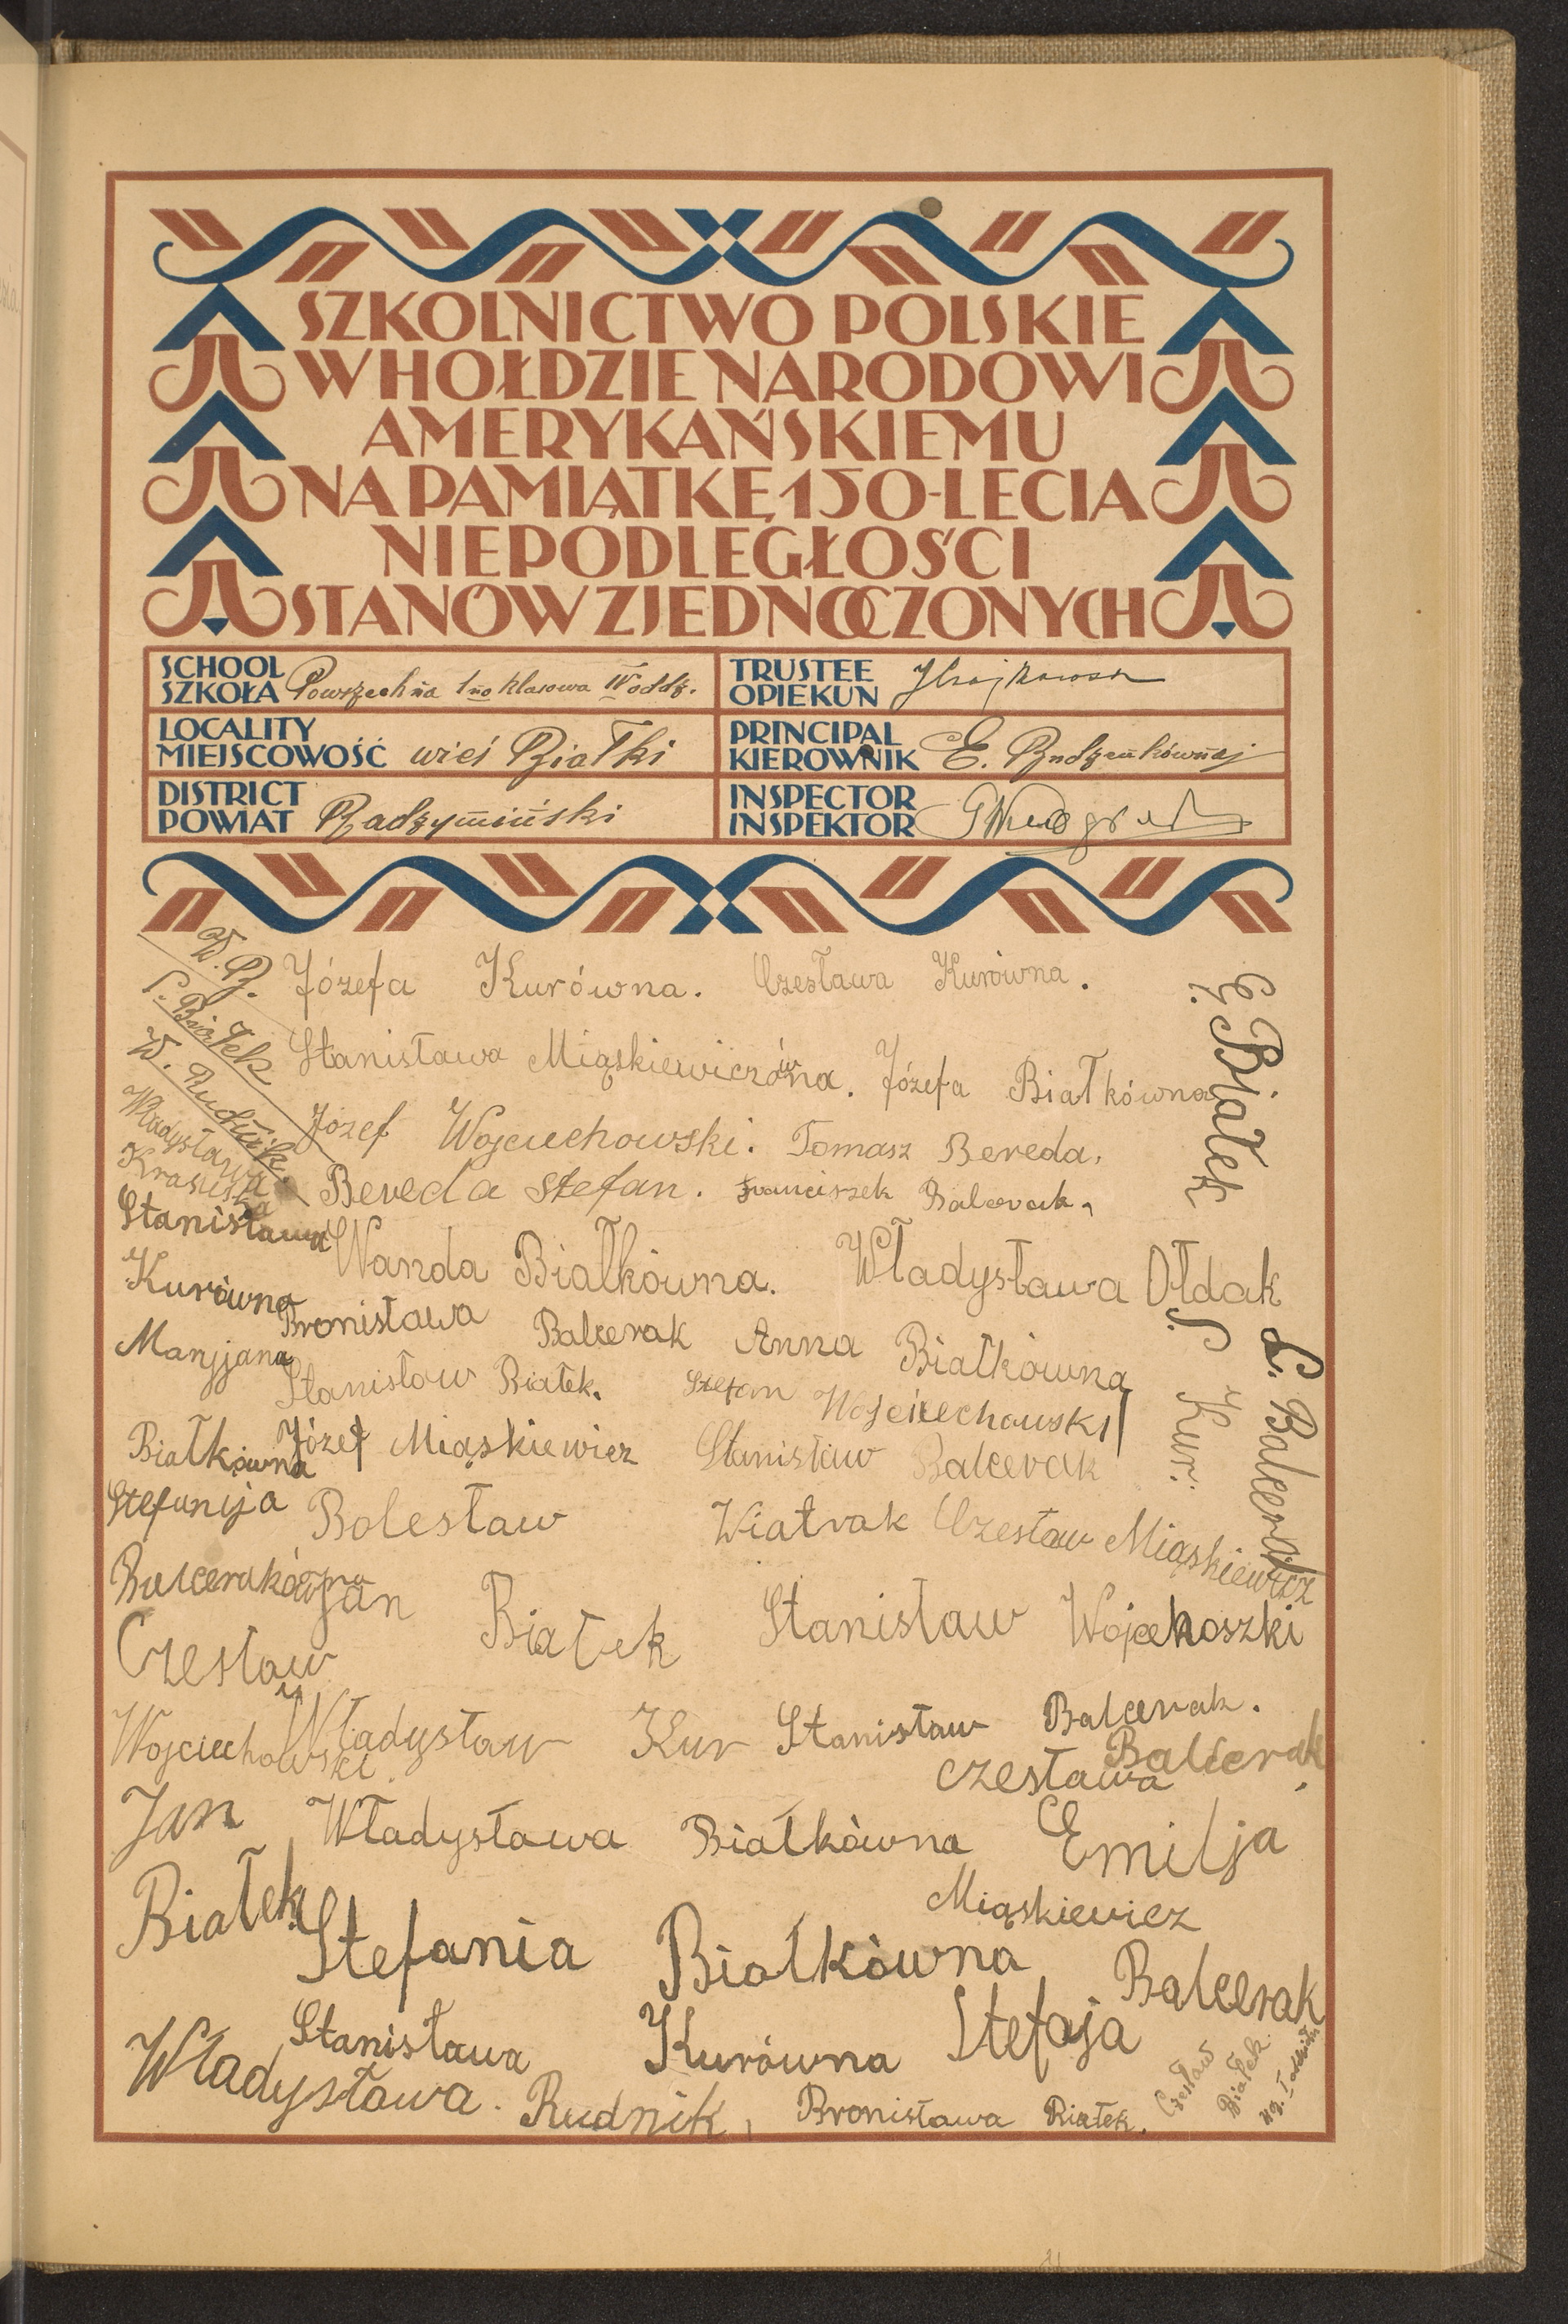 SZKOLNICTWO POLSKIE
W HOŁDZIE NARODOWI
AMERYKAŃSKIEMU
NA PAMIĄTKĘ 150-LECIA
NIEPODLEGŁOŚCI
STANÓW ZJEDNOCZONYCH
SCHOOL
SZKOŁA Powszechna 1no klasowa IV oddz.
LOCALITY
MIEJSCOWOŚĆ wieś Białki
DISTRICT
POWIAT Radzymiński
TRUSTEE
OPIEKUN
PRINCIPAL
KIEROWNIK E.
INSPECTOR
INSPEKTOR
W. B.
S. Białek
W. Rudnik.
Władysława
Krasuska
Józefa Kurówna. Czesława Kurówna.
Stanisława Miąskiewiczówna. Józefa Białkówna.
Józef Wojciechowski. Tomasz Bereda.
Bereda Stefan. Franciszek Balcerak.
E. Białek
Stanisława
Kurówna
Wanda Białkówna. Władysława Ołdak
Bronisława Balcerak Anna Białkówna
Maryjana
Białkówna
Stanisław Białek. Stefan Wojciechowski
Józef Miąskiewicz Stanisław Balcerak
S. Kur.
L. Balcerak
Stefanija
Balcerakówna
Bolesław Wiatrak Czesław Miąskiewicz
Jan Białek Stanisław Wojcehoszki
Czesław
Wojciechowski.
Władysław Kur Stanisław Balcerak.
czesława Balcerak.
Jan
Białek
Władysława Białkówna Emilja
Miąskiewicz
Stefania Białkówna
Stanisława Kurówna Stefaja Balcerak
Władysława. Rudnik, Bronisława Białek.
Czesław
Białek.